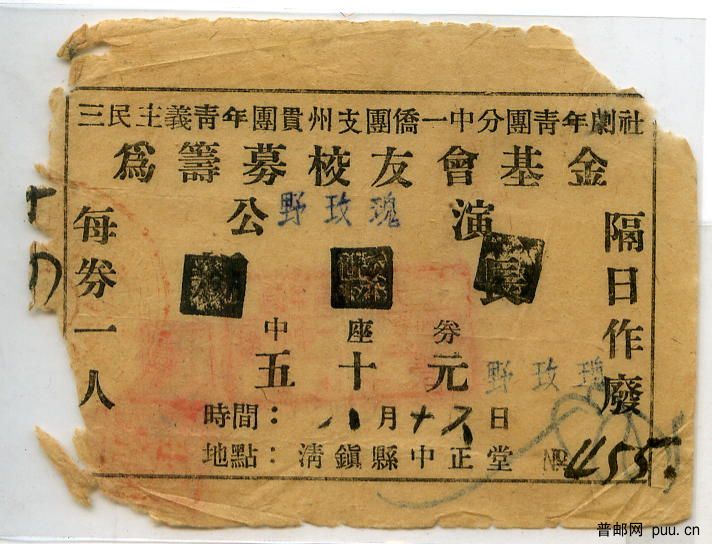 三民主義青年團貴州支團僑一中分團青年劇社
爲籌募校友會基金
公野玫瑰演
每券一人
隔日作廢
長
中座券
五十元
野玫瑰
時間：八月十八日
地點：清鎮縣中正堂 №455.
普邮网 puu.cn